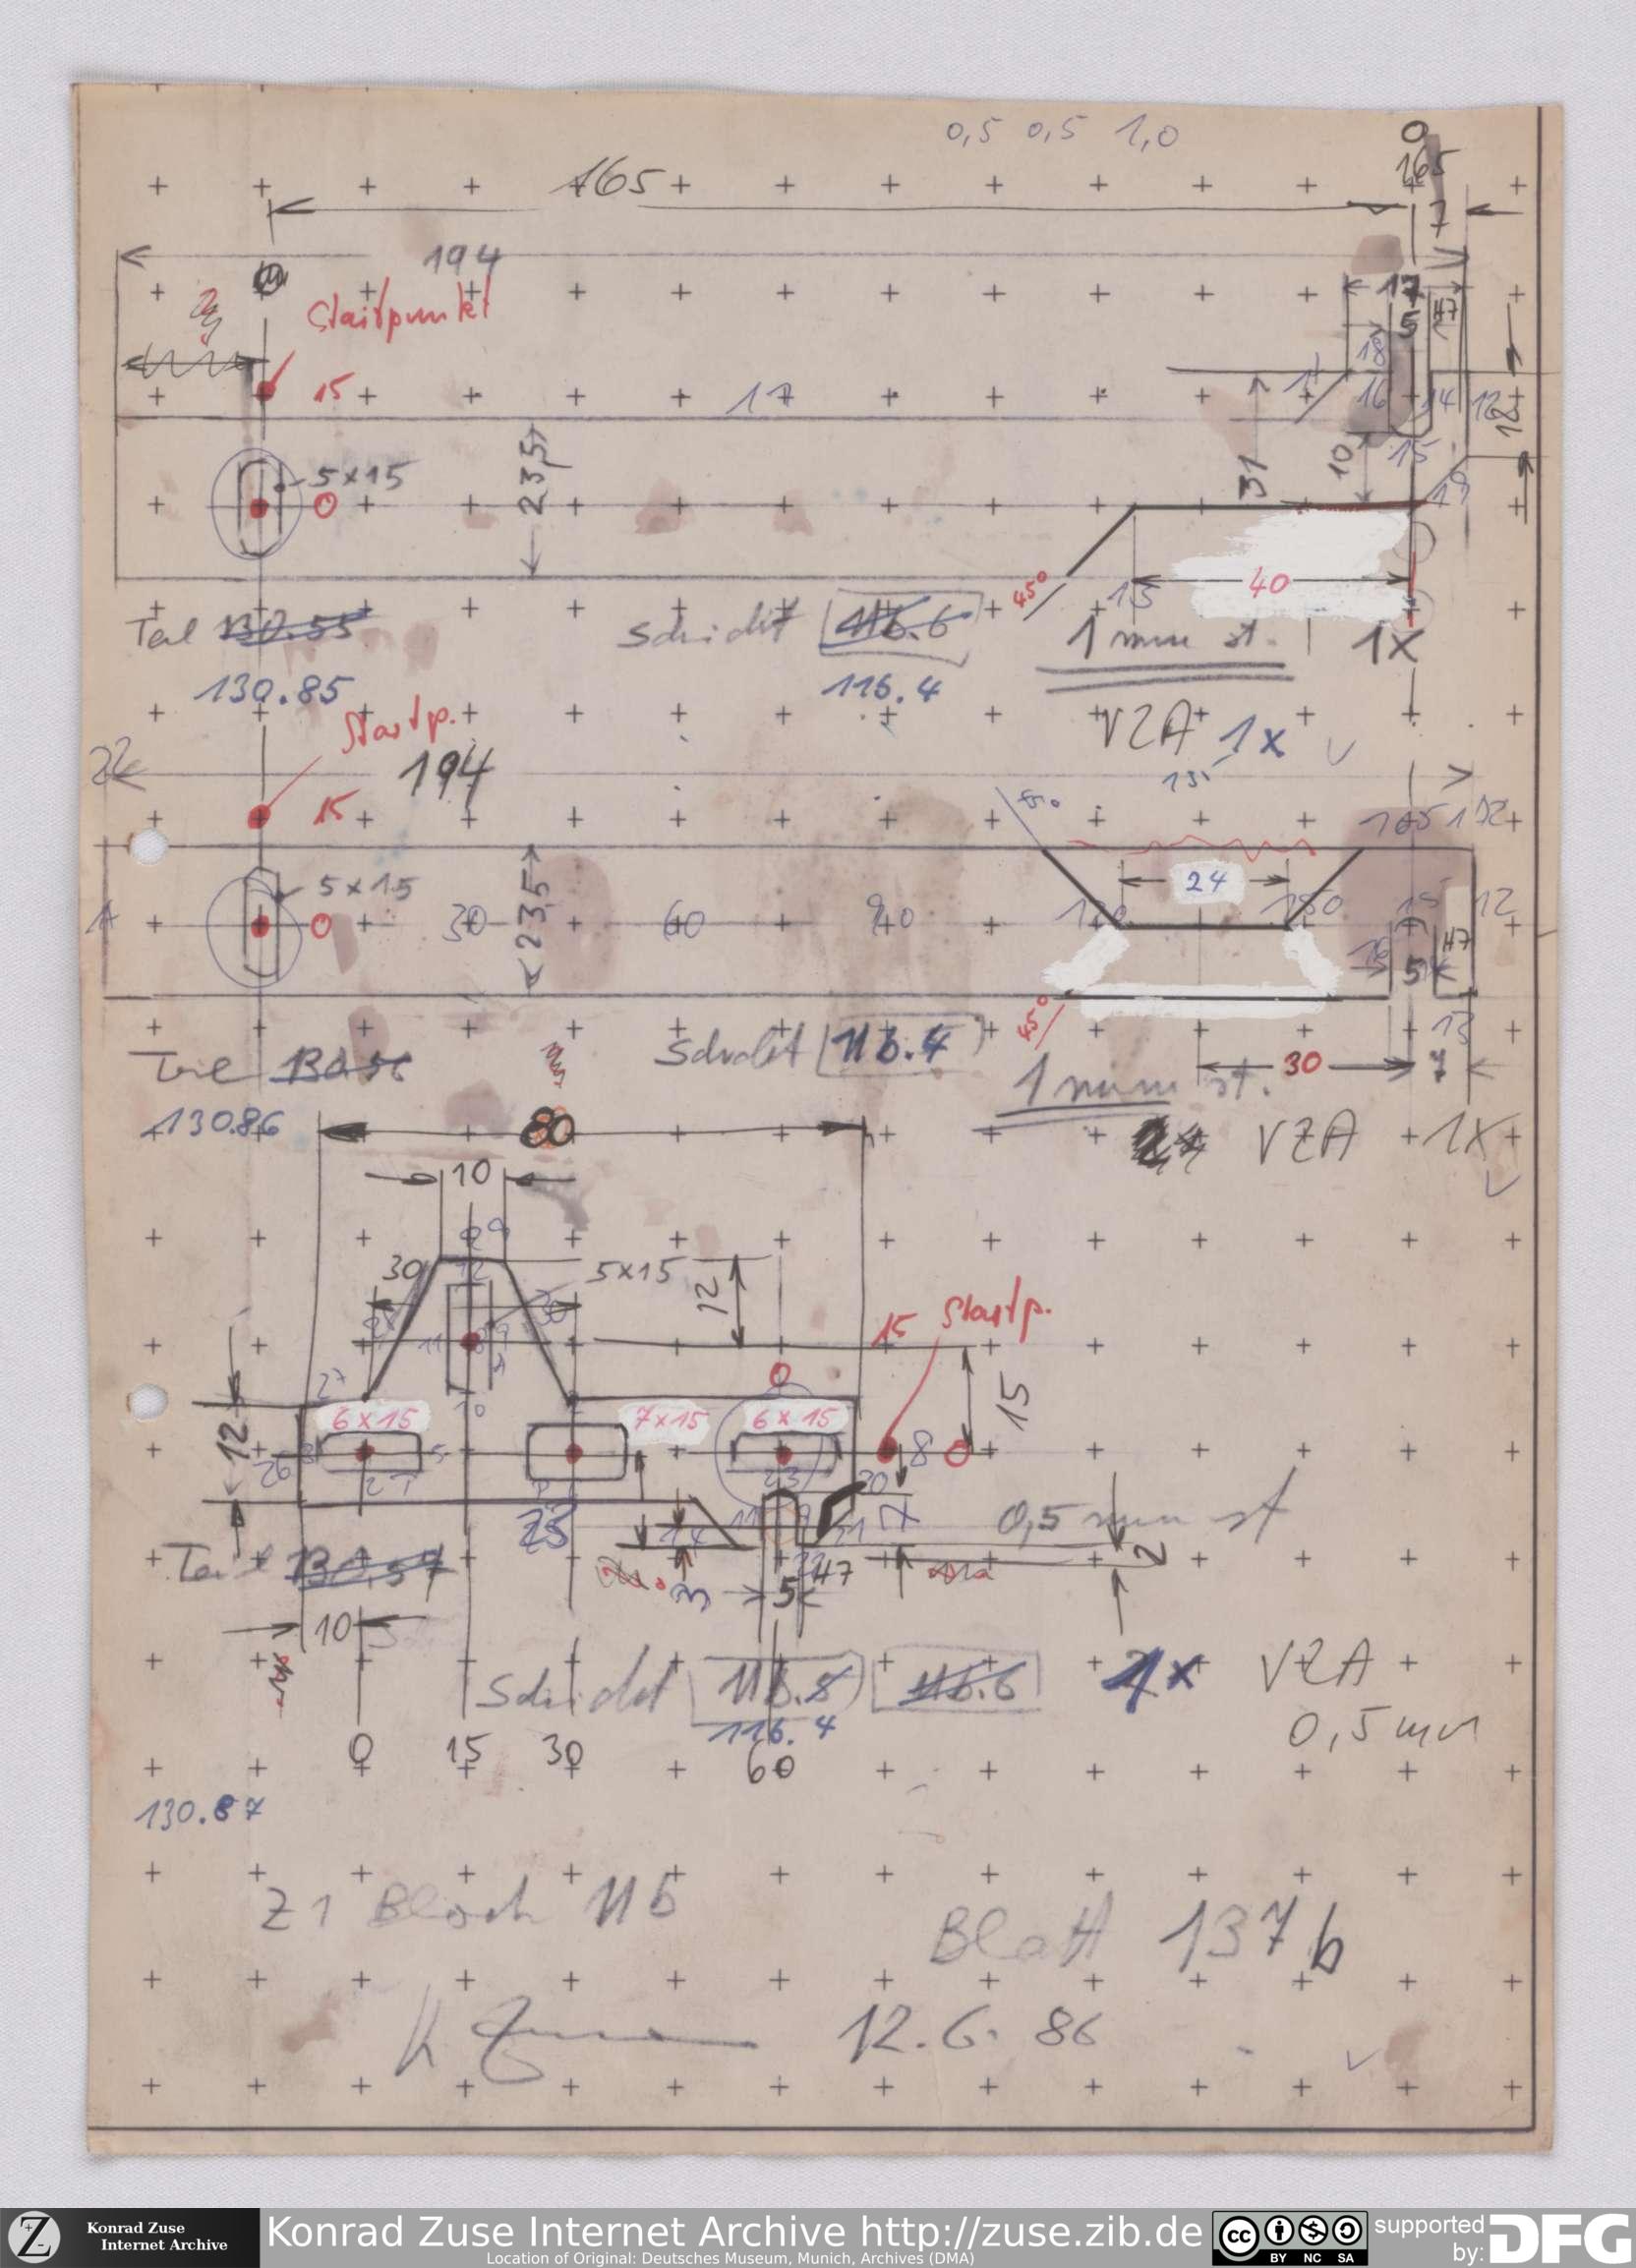 0,5 0,5 1,0
0
165
165
7
194
17
Startpunkt
H7
5
18
15
17
16
14
12
12
15
5x15
0
23,5
31
10
19
45°
15
40
Teil 130.55
Schicht 116.6
1 mm st.
1x
130.85
116.4
Startp.
VZA 1x
22
194
15
15
165 192
5x15
24
A
0
30
23,5
60
90
15
12
H7
5
13
45°
Teil 130.56
Schicht 116.4
30
7
1 mm st.
130.86
80
VZA 1x
10
30
5x15
12
15 Startp.
0
27
15
12
6x15
7x15
6x15
8 0
26
23
20
25
0,5 mm st
Teil 130.57
2
5
H7
10
Schicht 116.8 116.6
1x VZA
116.4
0,5 mm
0 15 30 60
130.87
Z1 Block 116
Blatt 137 b
K Zuse 12.6.86
Konrad Zuse
Internet Archive
Konrad Zuse Internet Archive http://zuse.zib.de
Location of Original: Deutsches Museum, Munich, Archives (DMA)
cc
BY NC SA
supported
by: DFG